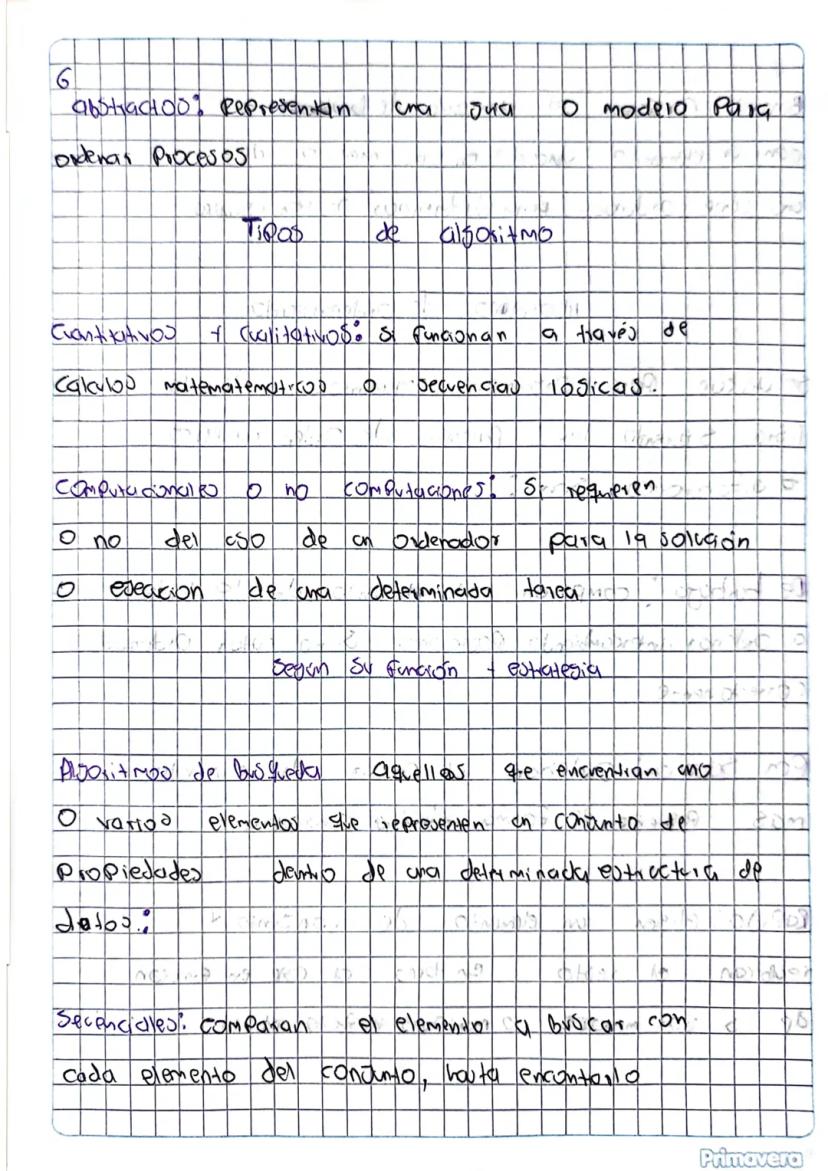 6
abstractoo: Representan una guia o modelo Para
ordenar Procesos
Tipos de algoritmo
Cuantitativos y Cualitativos: si funcionan a través de
Calculos matematematicos o secuencias lógicas.
Computacionales o no computaciones: Si requieren
O no del uso de un ordenador para la solución
O ejecucion de una determinada tarea
Segun su función y estrategia
Algoritmos de busqueda aquellos que encuentran uno
O varios elementos que representen un conjunto de
Propiedades dentro de una determinada estructura de
datos.:
Secenciales: comparan el elemento a buscar con
cada elemento del conjunto, hasta encontarlo
Primavera